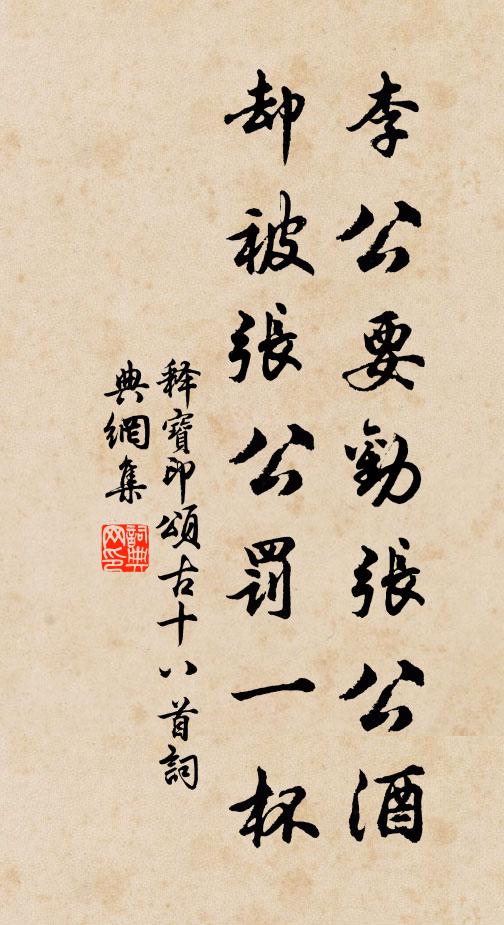 李公要勸張公酒
却被張公罰一杯
釋寶印頌古十八首詞
典網集
詞典網印